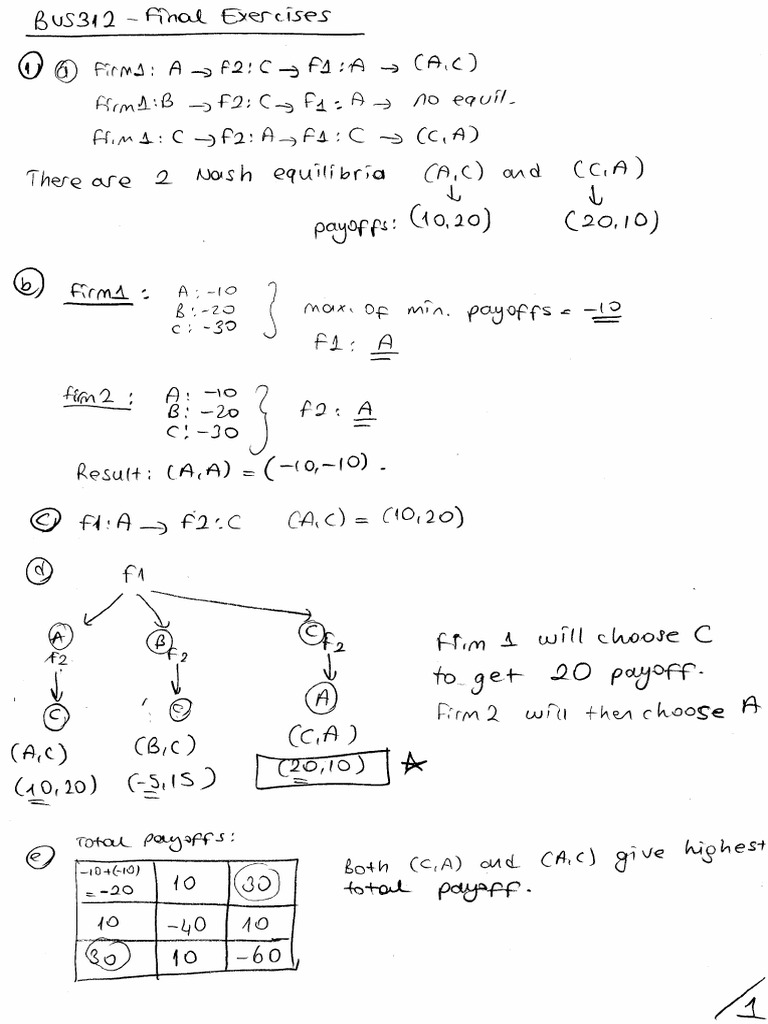 BUS312 - Final Exercises
① ⓐ Firm1: A → F2: C → F1: A → (A,C)
Firm1:B → F2: C → F1 = A → no equil.
Firm1: C → F2: A → F1: C → (C,A)
There are 2 Nash equilibria (A,C) and (C,A)
↓ ↓
payoffs: (10,20) (20,10)
ⓑ Firm1: A: -10
B: -20
C: -30
} max. of min. payoffs = -10
F1: A
Firm2: A: -10
B: -20
C: -30
} F2: A
Result: (A,A) = (-10,-10).
ⓒ F1:A → F2:C (A,C) = (10,20)
ⓓ F1
A B C
F2 F2 F2
C C A
(A,C) (B,C) (C,A)
(10,20) (-5,15) (20,10) ☆
Firm 1 will choose C
to get 20 payoff.
Firm 2 will then choose A
ⓔ Total payoffs:
-10+(-10) = -20 10 30
10 -40 10
30 10 -60
Both (C,A) and (A,C) give highest
total payoff.
1